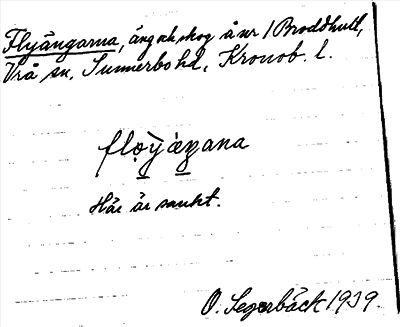 Flyängarna, äng och skog å nr 1 Broddhult,
Vrå sn, Sunnerbo hd, Kronob. l.
flo̤ỳæ̀ŋana
Här är sankt.
O. Segerbäck 1939.